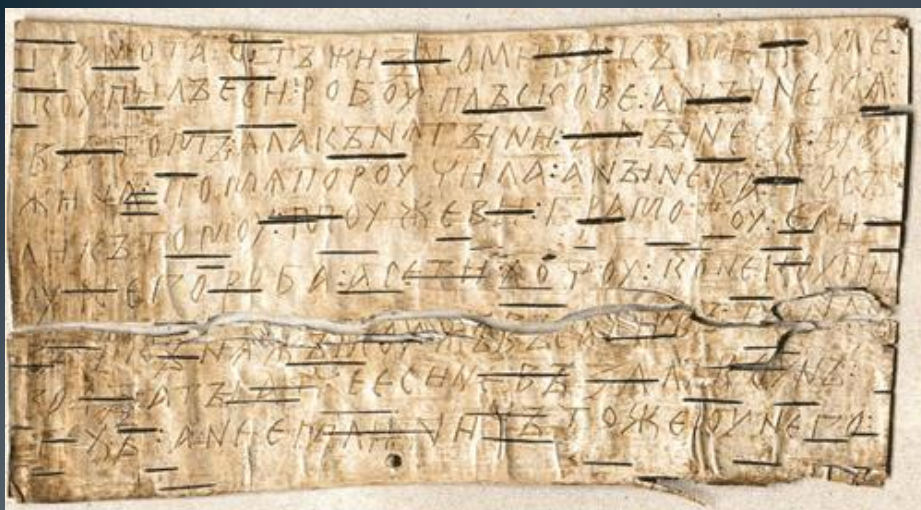 грамота : ѡтъ жизномира : къ микоуле :
коупилъ еси : робоу : плъскове : а ныне мѧ :
въ томъ : ѧла кънѧгыни : а ныне сѧ дроу
жина : по мѧ пороучила : а ныне ка : посъ
ли къ томоу : моужеви : грамотоу : ели
оу него роба : а се ти хочоу : коне коупи
въ : и кънѧжъ моужъ въсадивъ : та на съ
водъ : а ты атче еси не възалъ коунъ :
техъ : а не емли : ничъто же оу него :